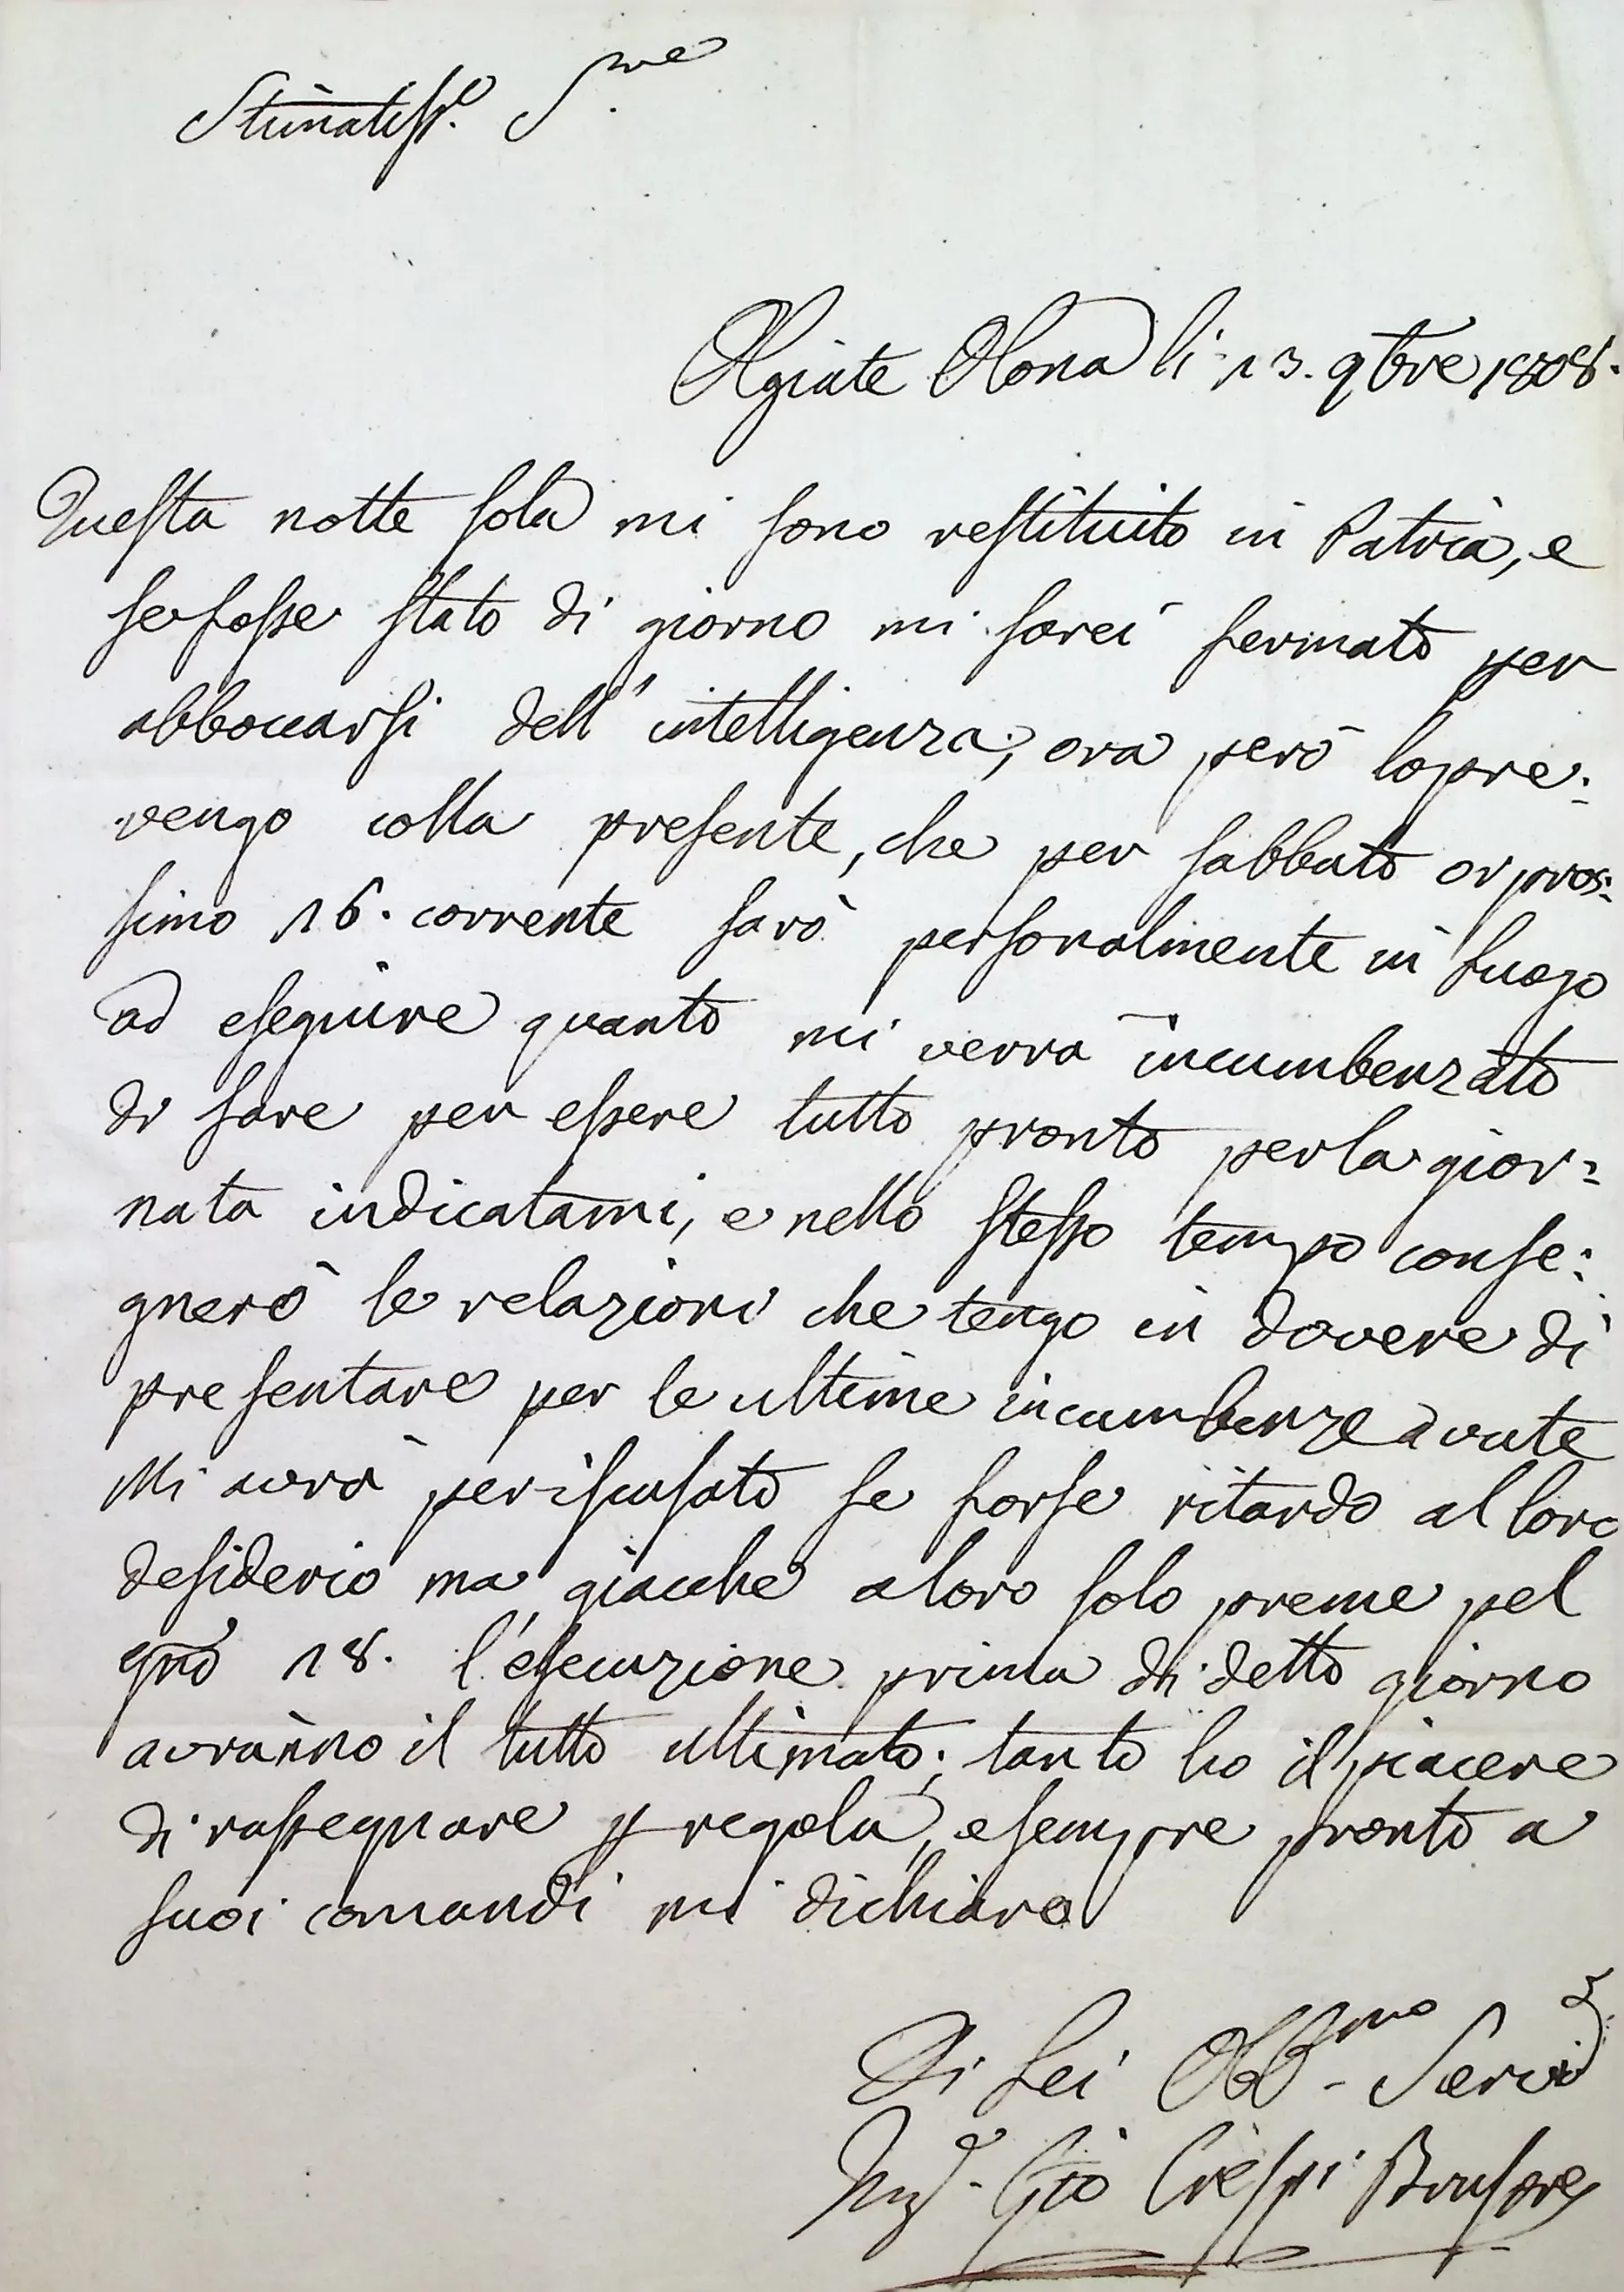 Stimatiss.º S.re
Olgiate Olona li 13. 9bre 1808.
Questa notte sola mi sono restituito in Patria, e
se fosse stato di giorno mi sarei fermato per
abboccarsi dell'intelligenza, ora però lo pre:
vengo colla presente, che per sabbato or pros:
simo 16. corrente sarò personalmente in luogo
ad eseguire quanto mi verrà incumbenzato
di fare per essere tutto pronto per la gior=
nata indicatami, e nello stesso tempo conse:
gnerò le relazioni che tengo in dovere di
presentare per le ultime incumbenze avute
Mi avrà per iscusato se forse ritardo al loro
desiderio ma giacche a loro solo preme pel
gno 18. l'esecuzione prima di detto giorno
avranno il tutto ultimato; tanto ho il piacere
di rassegnare p regola, e sempre pronto a
suoi comandi mi dichiaro
Di Lei Obb.mo Servid
Ing.e Gio Crespi